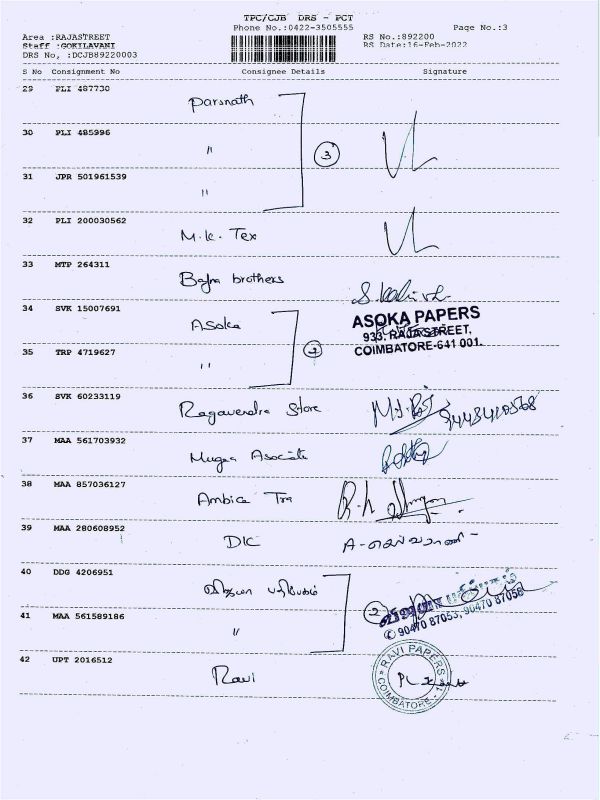 TPC/CJB DRS - PCT
Phone No.:0422-3505555
Page No.:3
Area :RAJASTREET
RS No.:892200
Staff :GOKILAVANI
RS Date:16-Feb-2022
DRS No, :DCJB89220003
S No Consignment No Consignee Details Signature
29 PLI 487730
Parsnath
30 PLI 485996
"
3
31 JPR 501961539
"
32 PLI 200030562
M.K. Tex
33 MTP 264311
Bajra brothers
34 SVK 15007691
Asoka
ASOKA PAPERS
933, RAJA STREET,
COIMBATORE-641 001.
35 TRP 4719627
"
2
36 SVK 60233119
Ragavendra Store
37 MAA 561703932
Mugaa Asociate
38 MAA 857036127
Ambica Tra
39 MAA 280608952
DIC
40 DDG 4206951
2
41 MAA 561589186
"
90470 87053, 90470 87058
42 UPT 2016512
Ravi
RAVI PAPERS
COIMBATORE - 1